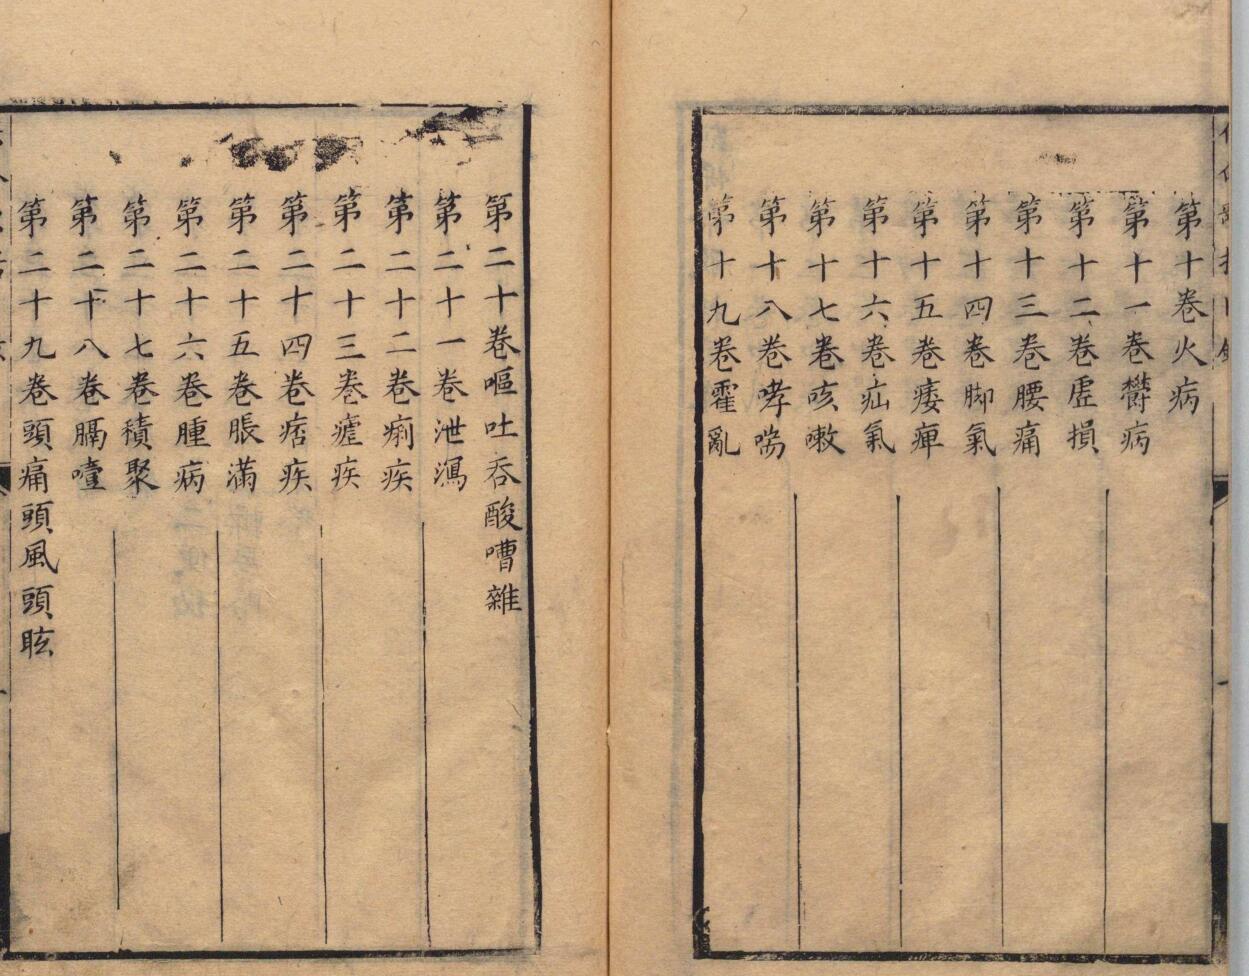 第十卷火病
第十一卷欝病
第十二卷虚損
第十三卷腰痛
第十四卷脚氣
第十五卷痿痺
第十六卷疝氣
第十七卷咳嗽
第十八卷哮喘
第十九卷霍亂
第二十卷嘔吐吞酸嘈雜
第二十一卷泄瀉
第二十二卷痢疾
第二十三卷瘧疾
第二十四卷痞疾
第二十五卷脹滿
第二十六卷腫病
第二十七卷積聚
第二十八卷膈噎
第二十九卷頭痛頭風頭眩